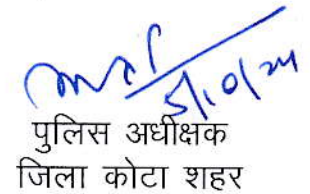 5/10/24
पुलिस अधीक्षक
जिला कोटा शहर